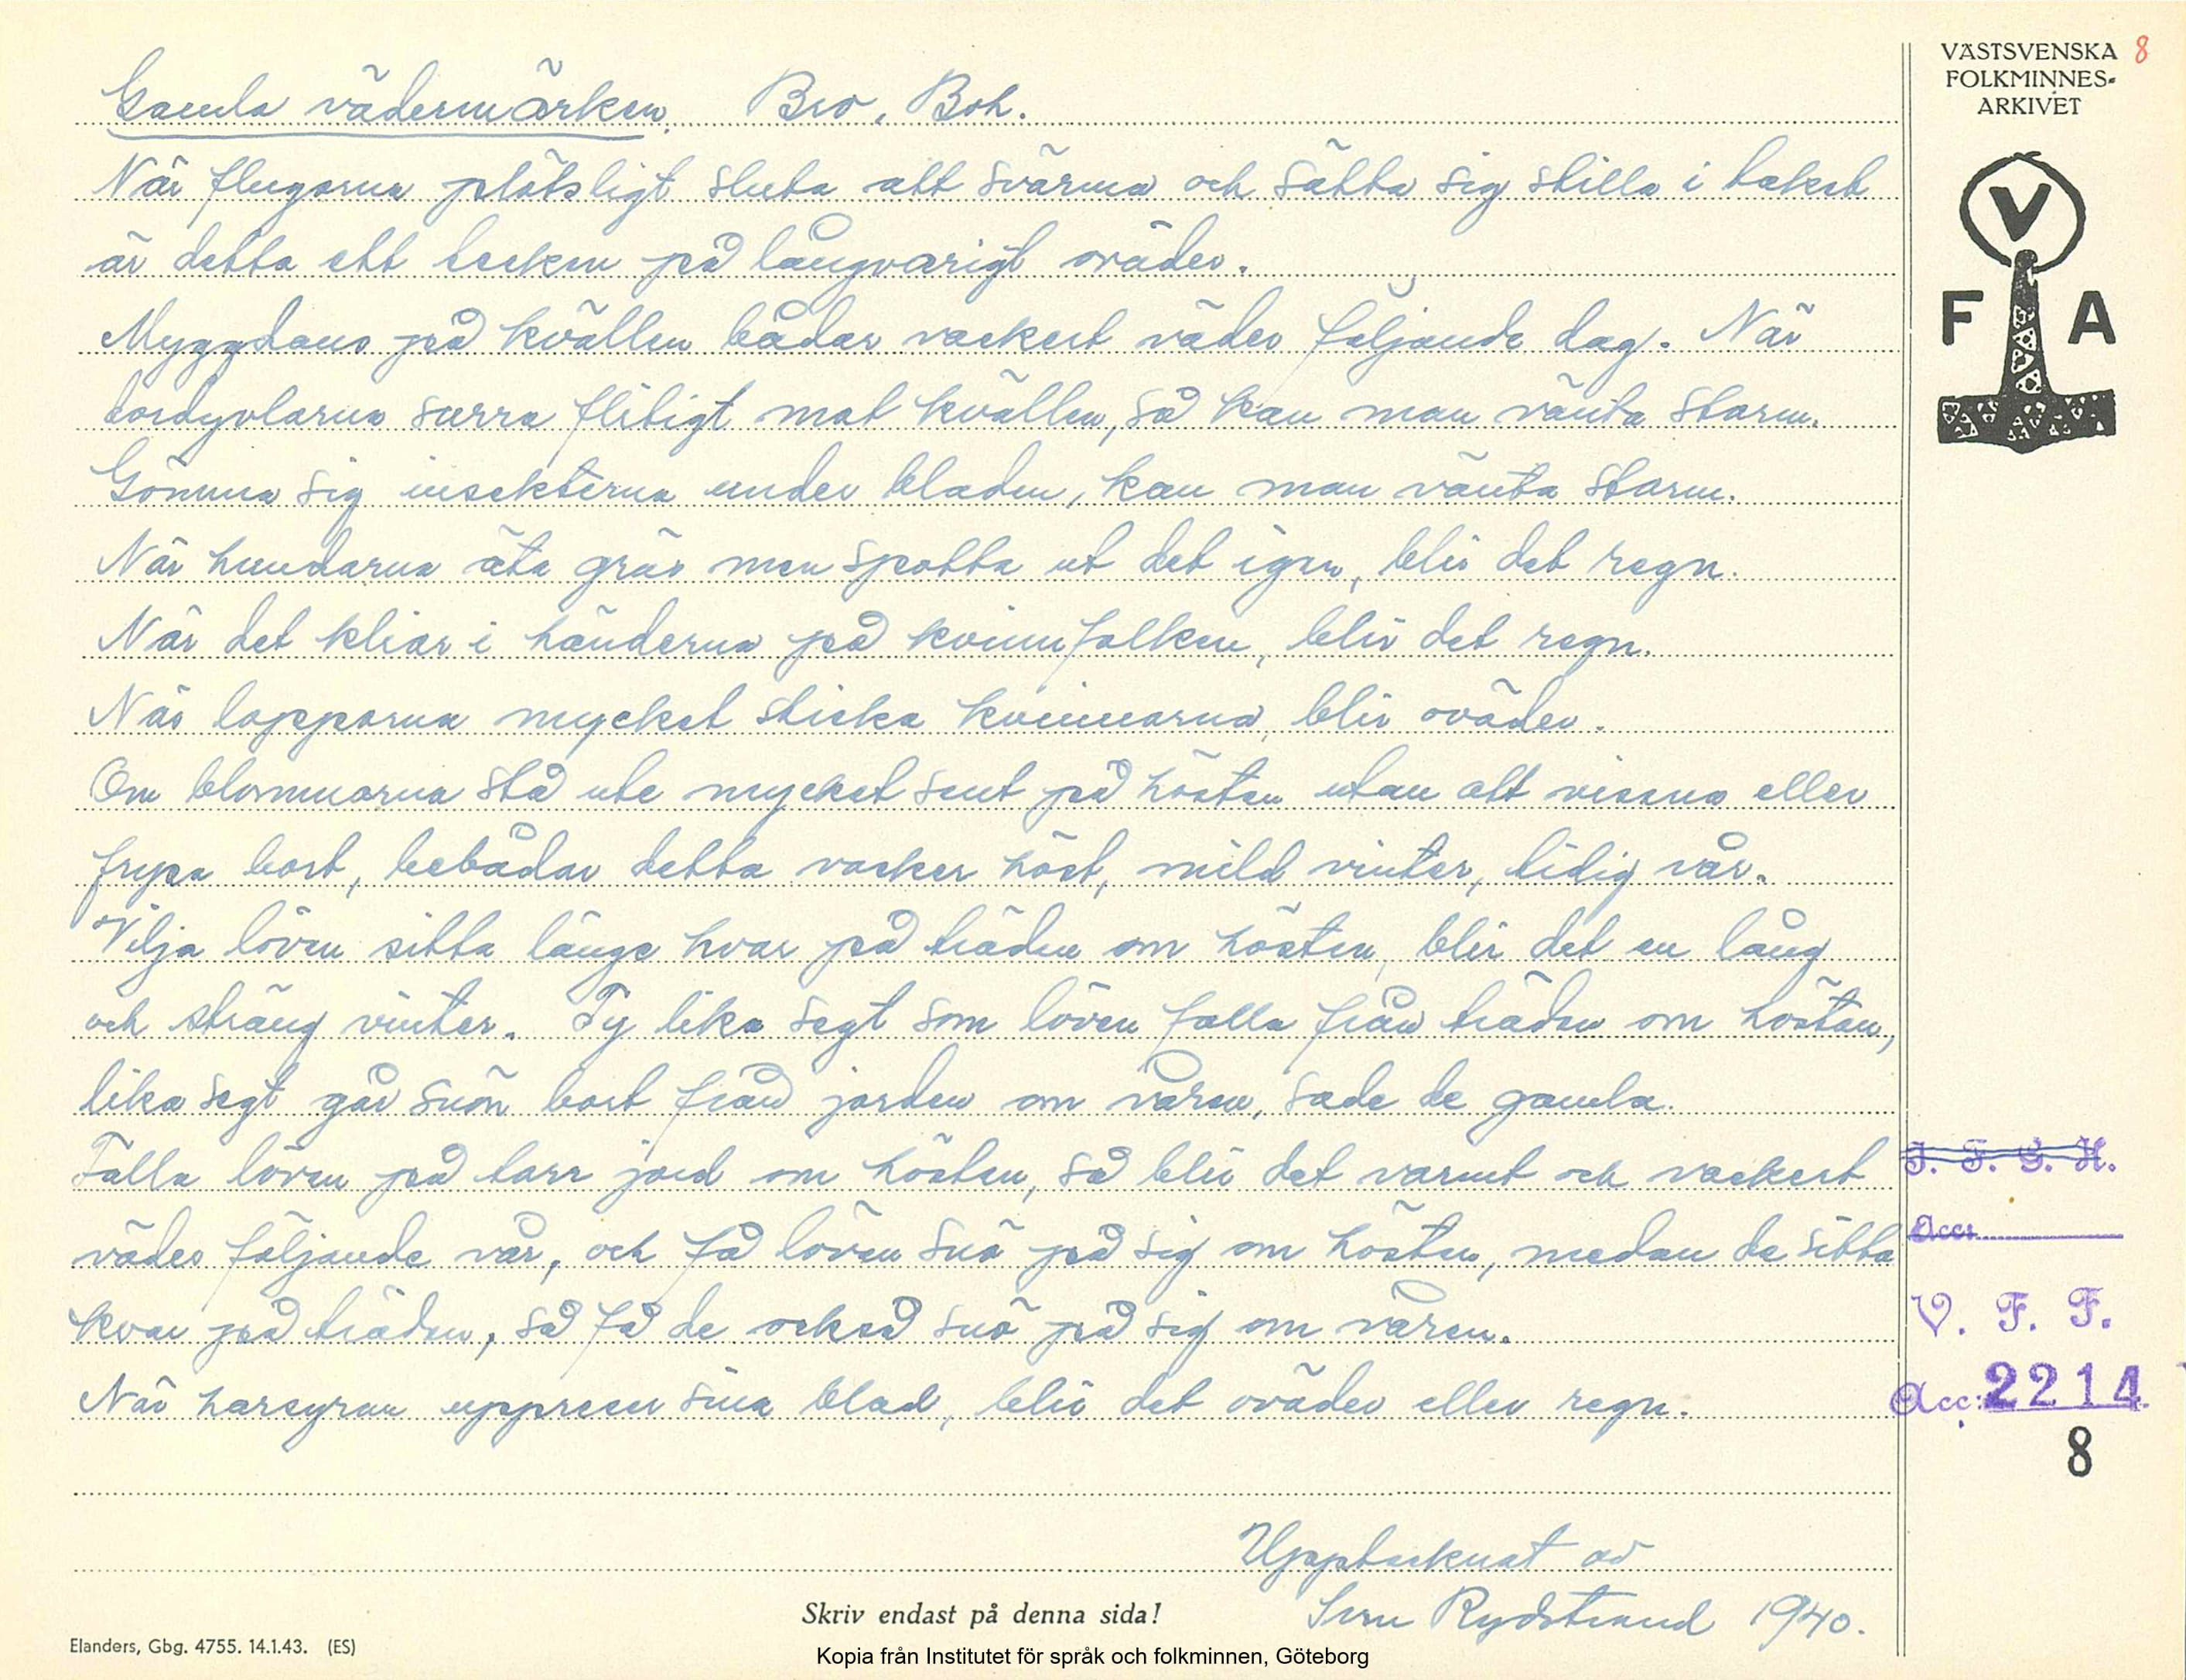 Gamla vädermärken. Bro, Boh.
När flugorna plötsligt sluta att svärma och sätta sig stilla i taket
är detta ett tecken på långvarigt oväder.
Myggdans på kvällen bådar vackert väder följande dag. När
tordyvlarna surra flitigt mot kvällen, så kan man vänta storm.
Gömma sig insekterna under bladen, kan man vänta storm.
När hundarna äta gräs men spotta ut det igen, blir det regn.
När det kliar i händerna på kvinnfolken, blir det regn.
När lopporna mycket sticka kvinnorna, blir oväder.
Om blommorna stå ute mycket sent på hösten utan att vissna eller
frysa bort, bebådar detta vacker höst, mild vinter, tidig vår.
Vilja löven sitta länge kvar på träden om hösten, blir det en lång
och sträng vinter. Ty lika segt som löven falla från träden om hösten,
lika segt går snön bort från jorden om våren, sade de gamla.
Falla löven på torr jord om hösten, så blir det varmt och vackert
väder följande vår, och få löven snö på sig om hösten, medan de sitta
kvar på träden, så få de också snö på sig om våren.
När harsyran uppreser sina blad, blir det oväder eller regn.
Upptecknat av
Rydstrand 1940.
Skriv endast på denna sida!
Elanders, Gbg. 4755. 14.1.43. (ES)
Kopia från Institutet för språk och folkminnen, Göteborg
VÄSTSVENSKA 8
FOLKMINNES-
ARKIVET
V
F A
I. F. G. H.
Acc.
V. F. F.
Acc: 2214
8